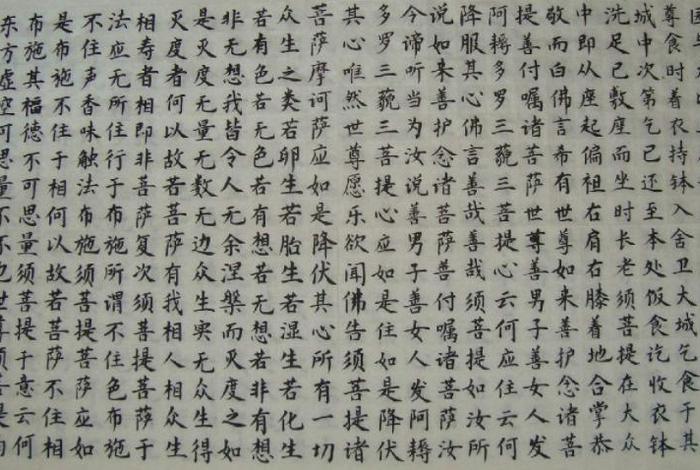 尊食时着衣持钵入舍卫大城乞食于其
城中次第乞已还至本处饭食讫收衣钵
洗足已敷座而坐时长老须菩提在大众
中即从座起偏袒右肩右膝着地合掌恭
敬而白佛言希有世尊如来善护念诸菩
提善付嘱诸菩萨世尊善男子善女人发
阿耨多罗三藐三菩提心云何应住云何
降服其心佛言善哉善哉须菩提如汝所
说如来善护念诸菩萨善付嘱诸菩萨汝
今谛听当为汝说善男子善女人发阿耨
多罗三藐三菩提心应如是住如是降伏
其心唯然世尊愿乐欲闻佛告须菩提诸
菩萨摩诃萨应如是降伏其心所有一切
众生之类若卵生若胎生若湿生若化生
若有色若无色若有想若无想若非有想
非无想我皆令入无余涅槃而灭度之如
是灭度无量无数无边众生实无众生得
灭度者何以故若菩萨有我相人相众生
相寿者相即非菩萨复次须菩提菩萨于
法应无所住行于布施所谓不住色布施
不住声香味触法布施须菩提菩萨应如
是布施不住于相何以故若菩萨不住相
布施其福德不可思量须菩提于意云何
东方虚空可思量不不也世尊须菩提南